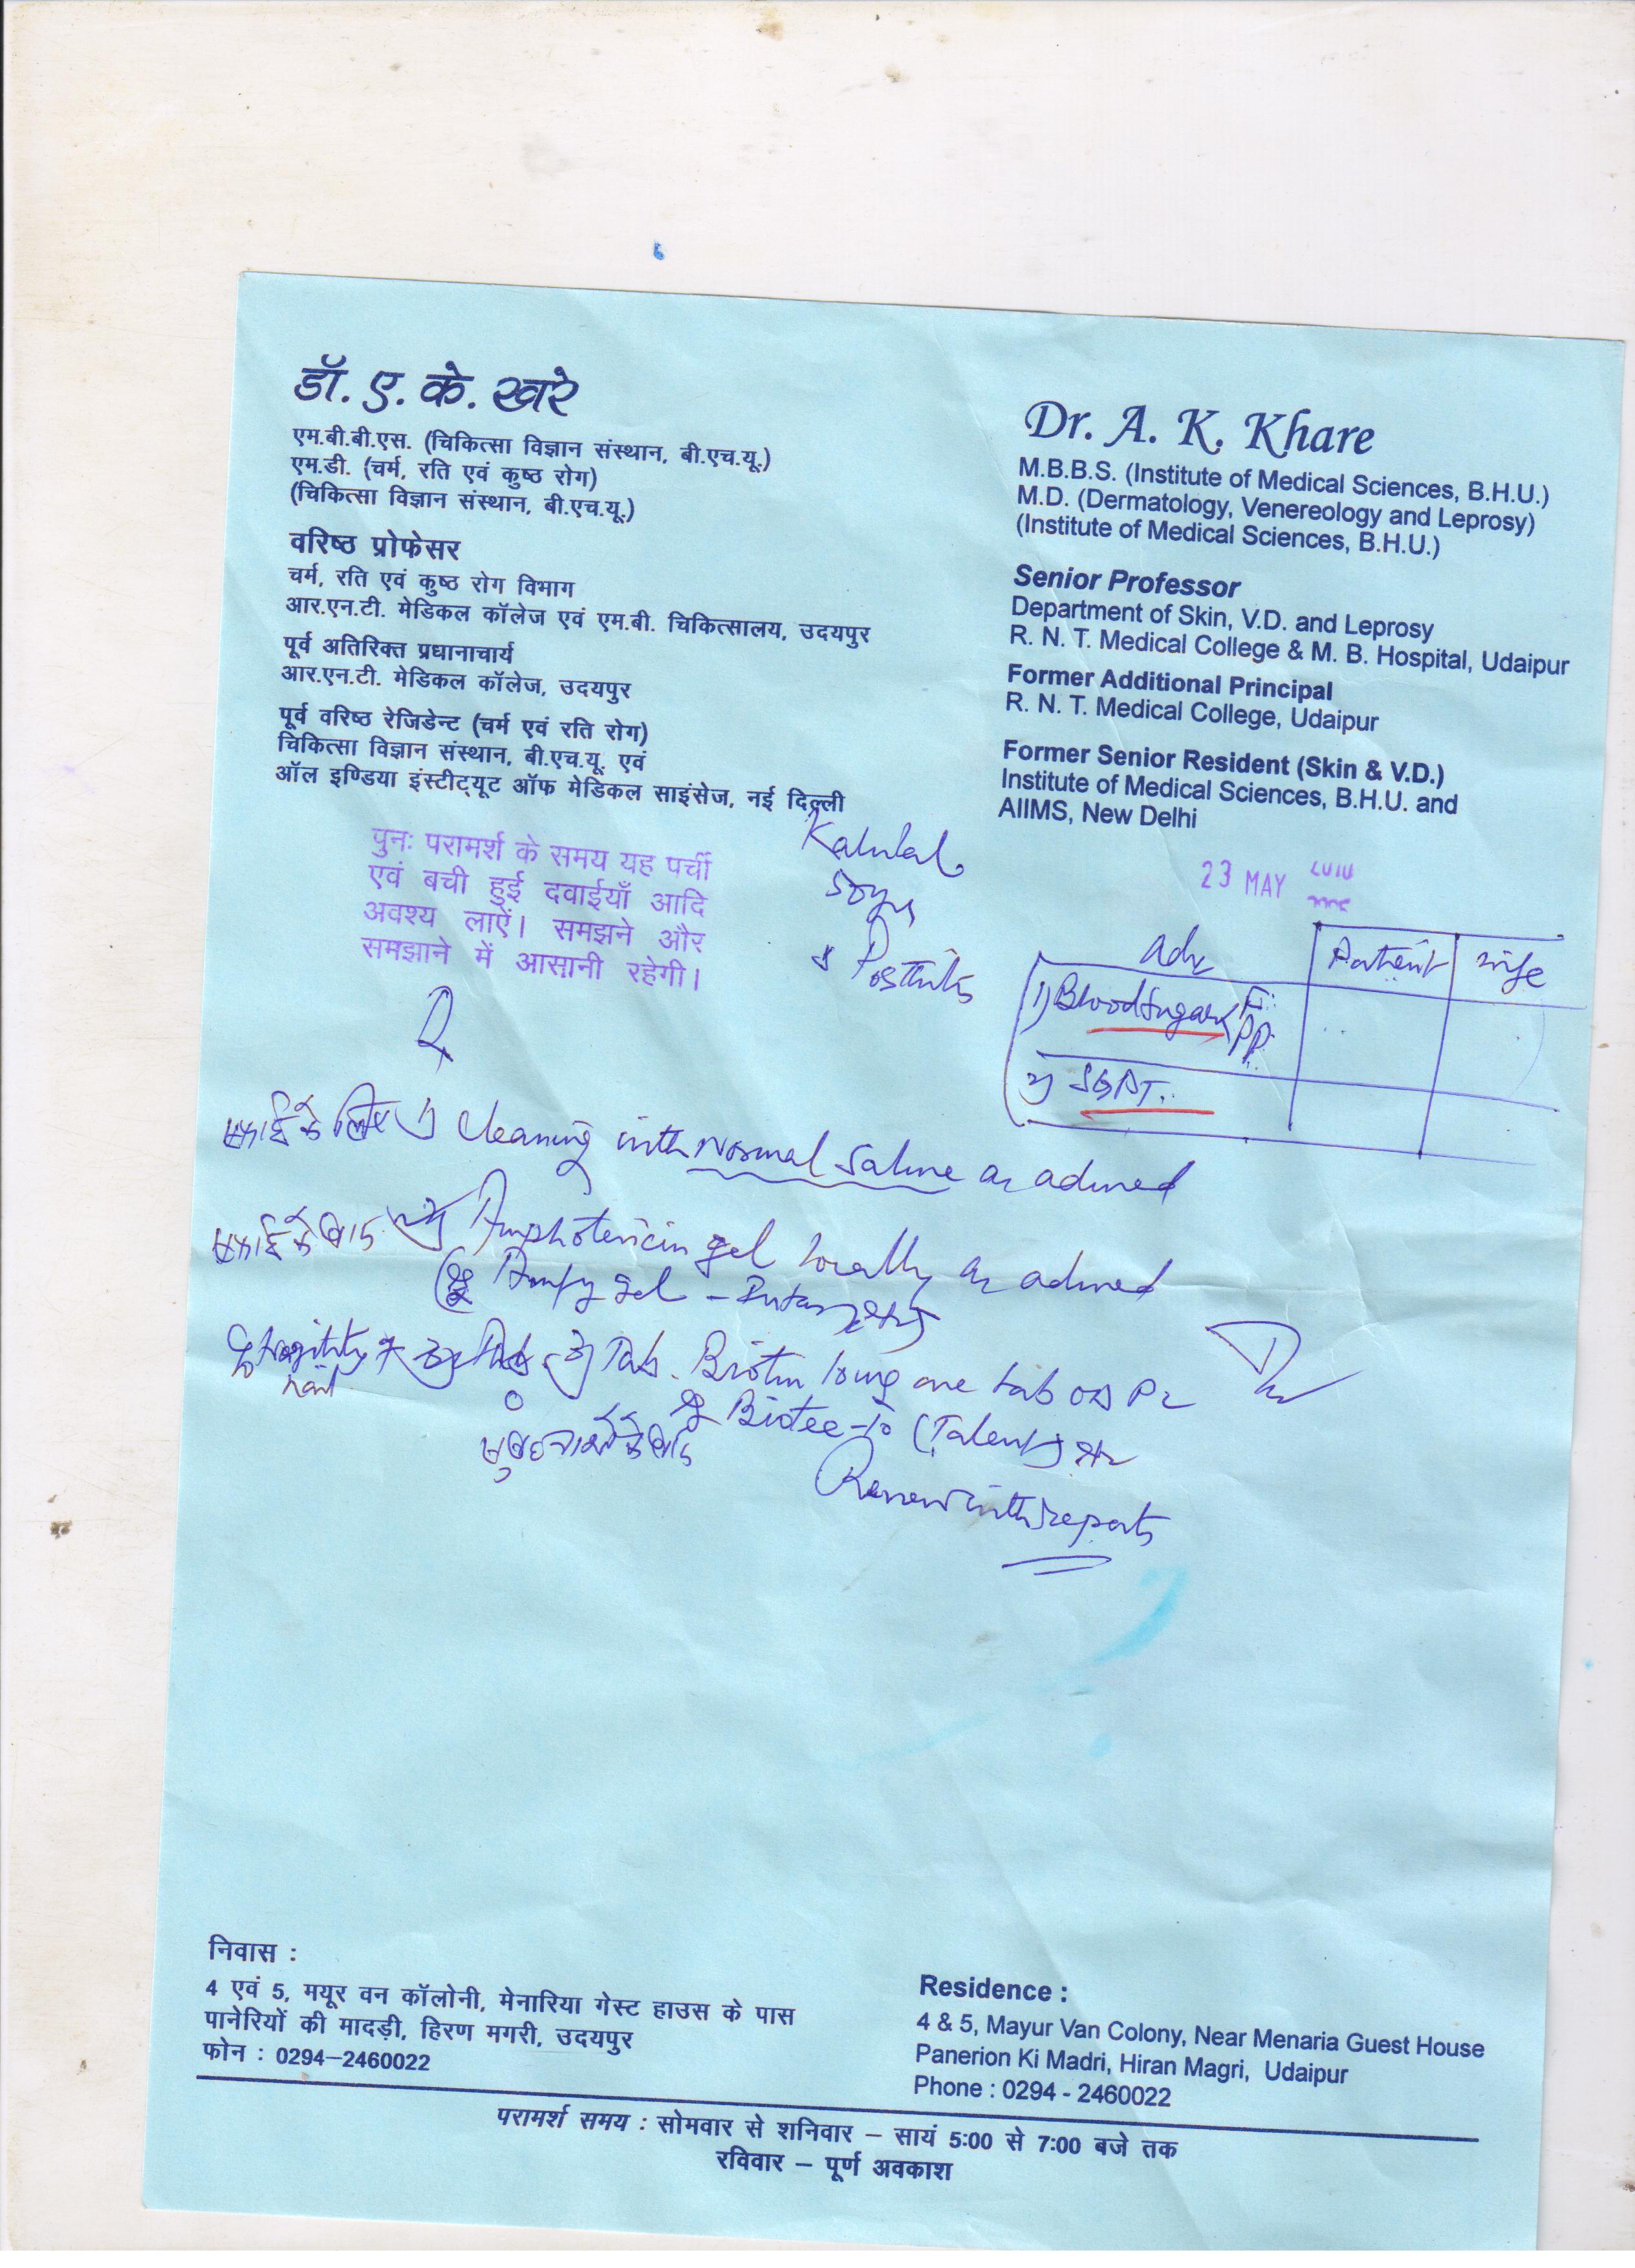 डॉ. ए. के. खरे
एम.बी.बी.एस. (चिकित्सा विज्ञान संस्थान, बी.एच.यू.)
एम.डी. (चर्म, रति एवं कुष्ठ रोग)
(चिकित्सा विज्ञान संस्थान, बी.एच.यू.)
वरिष्ठ प्रोफेसर
चर्म, रति एवं कुष्ठ रोग विभाग
आर.एन.टी. मेडिकल कॉलेज एवं एम.बी. चिकित्सालय, उदयपुर
पूर्व अतिरिक्त प्रधानाचार्य
आर.एन.टी. मेडिकल कॉलेज, उदयपुर
पूर्व वरिष्ठ रेजिडेन्ट (चर्म एवं रति रोग)
चिकित्सा विज्ञान संस्थान, बी.एच.यू. एवं
ऑल इण्डिया इंस्टीट्यूट ऑफ मेडिकल साइंसेज, नई दिल्ली
Dr. A. K. Khare
M.B.B.S. (Institute of Medical Sciences, B.H.U.)
M.D. (Dermatology, Venereology and Leprosy)
(Institute of Medical Sciences, B.H.U.)
Senior Professor
Department of Skin, V.D. and Leprosy
R. N. T. Medical College & M. B. Hospital, Udaipur
Former Additional Principal
R. N. T. Medical College, Udaipur
Former Senior Resident (Skin & V.D.)
Institute of Medical Sciences, B.H.U. and
AIIMS, New Delhi
पुनः परामर्श के समय यह पर्ची
एवं बची हुई दवाईयाँ आदि
अवश्य लाऐं। समझने और
समझाने में आसानी रहेगी।
Kalulal
50yrs
Posthitis
23 MAY
Adv Patient wife
1) Blood Sugar F: PP:
2) SGPT.
सफाई के लिए 1) Cleaning with Normal Saline as advised
सफाई के बाद 2) Amphotericin gel locally as advised
Amfy gel - Intas
fragility nail 3) Tab. Biotin 10mg one tab OD PC
सुबह नाश्ते के बाद Biotee-10 (Talent)
Review with reports
निवास :
4 एवं 5, मयूर वन कॉलोनी, मेनारिया गेस्ट हाउस के पास
पानेरियों की मादड़ी, हिरण मगरी, उदयपुर
फोन : 0294–2460022
Residence :
4 & 5, Mayur Van Colony, Near Menaria Guest House
Panerion Ki Madri, Hiran Magri, Udaipur
Phone : 0294 - 2460022
परामर्श समय : सोमवार से शनिवार – सायं 5:00 से 7:00 बजे तक
रविवार – पूर्ण अवकाश